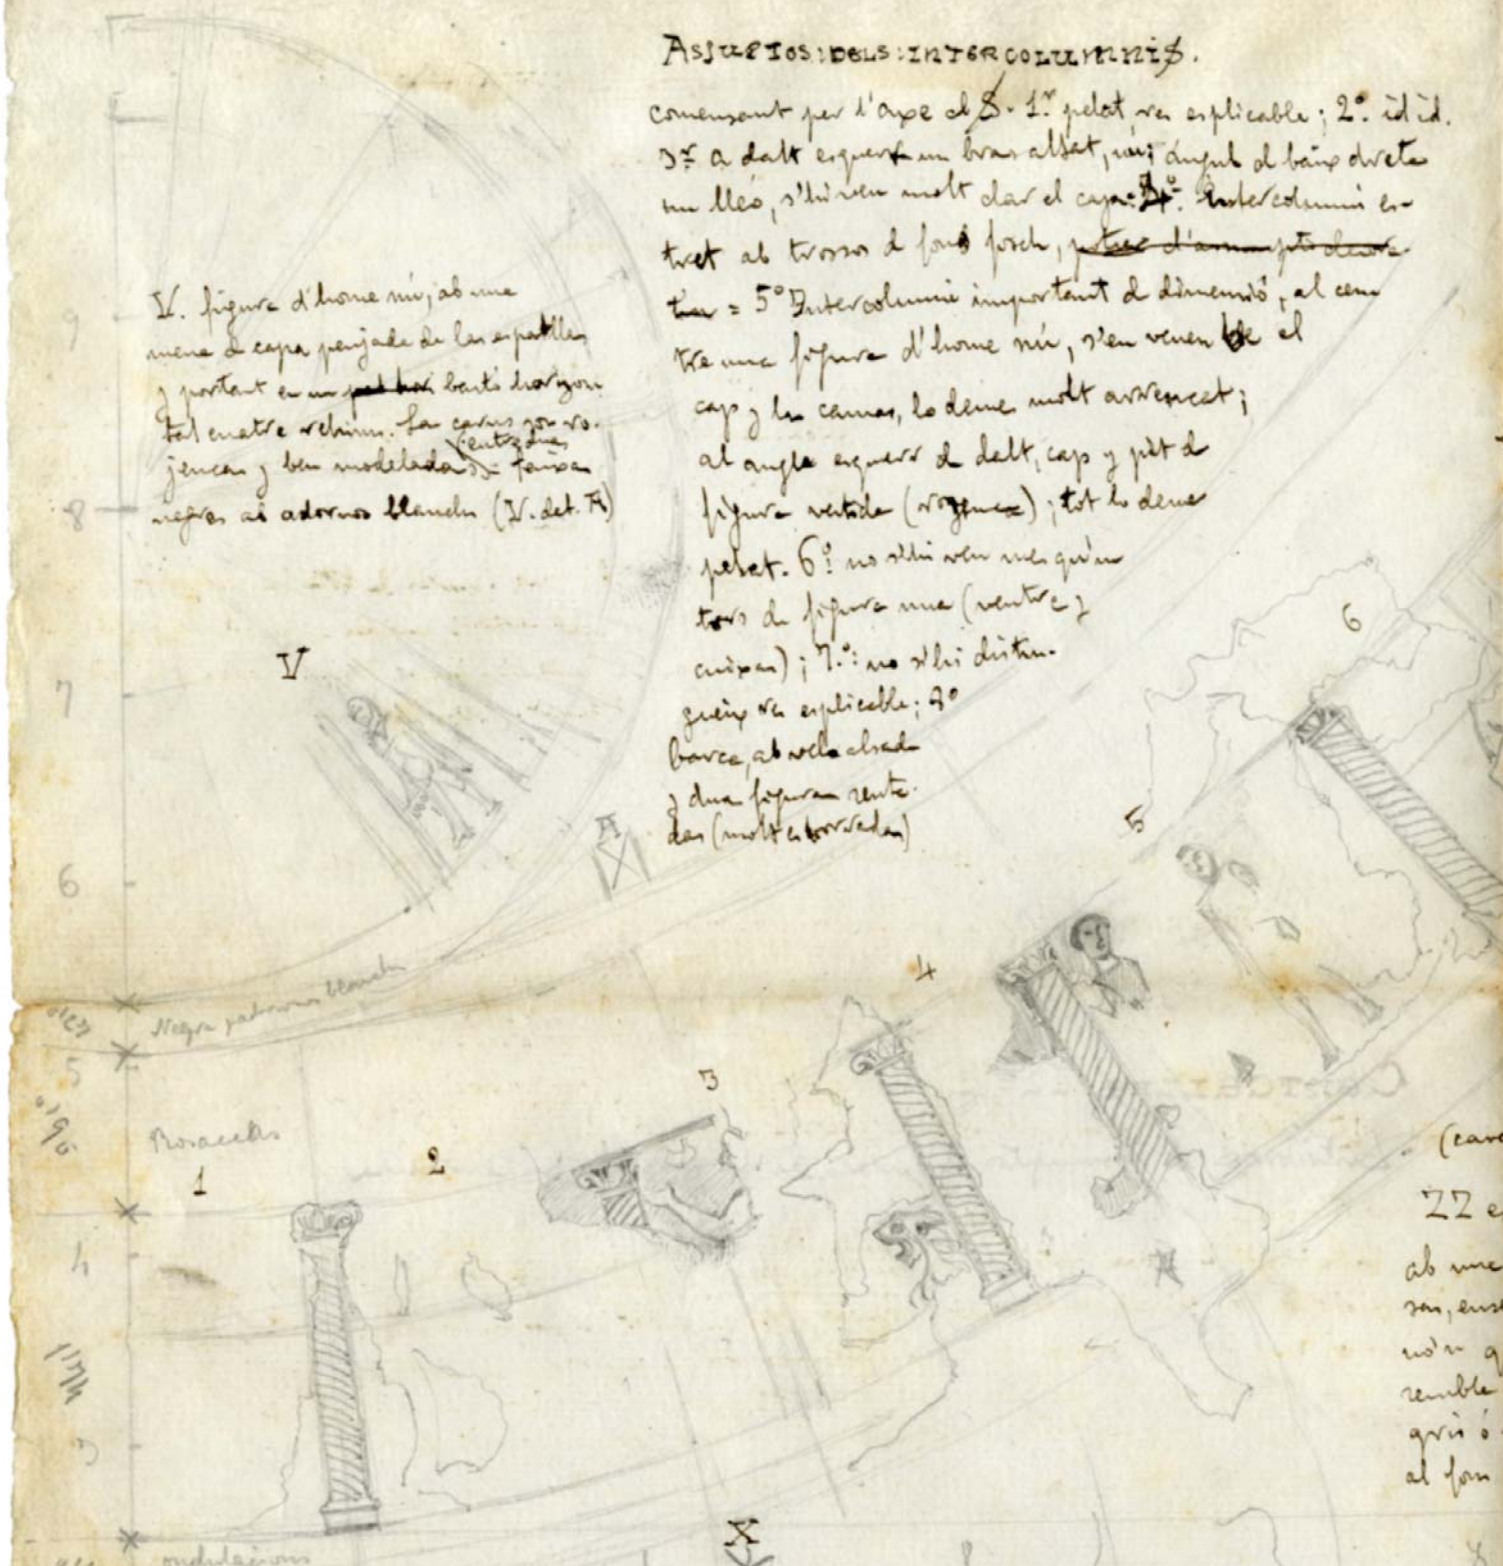 ASSUPTOS:DELS:INTERCOLUMNIS.
comensant per l'axe al S. 1.r pelat, res esplicable; 2.º id id.
3.r a dalt esquerra un bras alsat, angul d baix dreta
un lleó, s'hi veu molt clar el cap: 4º. Intercolumni es-
tret ab trossos d fons fosch,
= 5º Intercolumni important d dimensió, al cen
tre una figura d'home nú, s'en veuen be el
cap y las camas, lo demes molt arrencat;
al angle esquerr d dalt, cap y pit d
figura vestida (rogenca); tot lo demes
pelat. 6º no s'hi veu mes qu'un
tors de figura nua (ventre y
cuixas); 7.º: no s'hi distin-
gueix res esplicable; 8º
barca, ab vela alsada
y duas figuras senta-
das (molt esborradas)
V. figura d'home nú, ab una
mena d capa penjada de las espatllas
y portant en un bastó horizon
tal cuatre
jencas y ben modeladas entre duas faixas
negras ab adornos blanchs (V. det. A)
V
A
9
8
7
6
5
4
3
Negra blanch
1
2
3
4
5
6
X
ondulacions
(care
ZZ e
ab una
sas, ens
nó'n q
sembla
gris ó
al fon